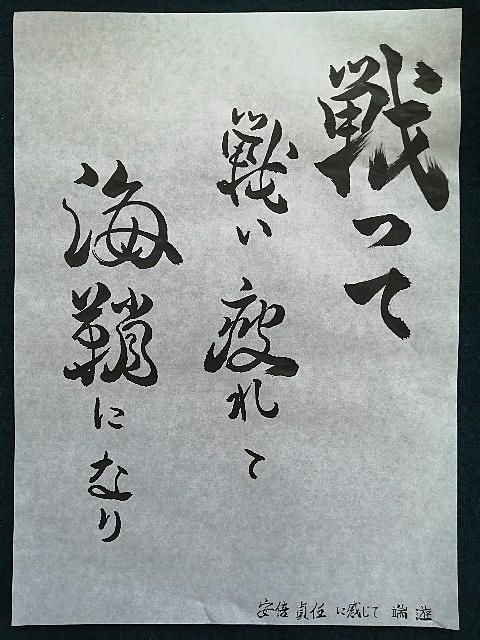 戦って
戦い疲れて
海鞘になり
安倍貞任に感じて 端遊